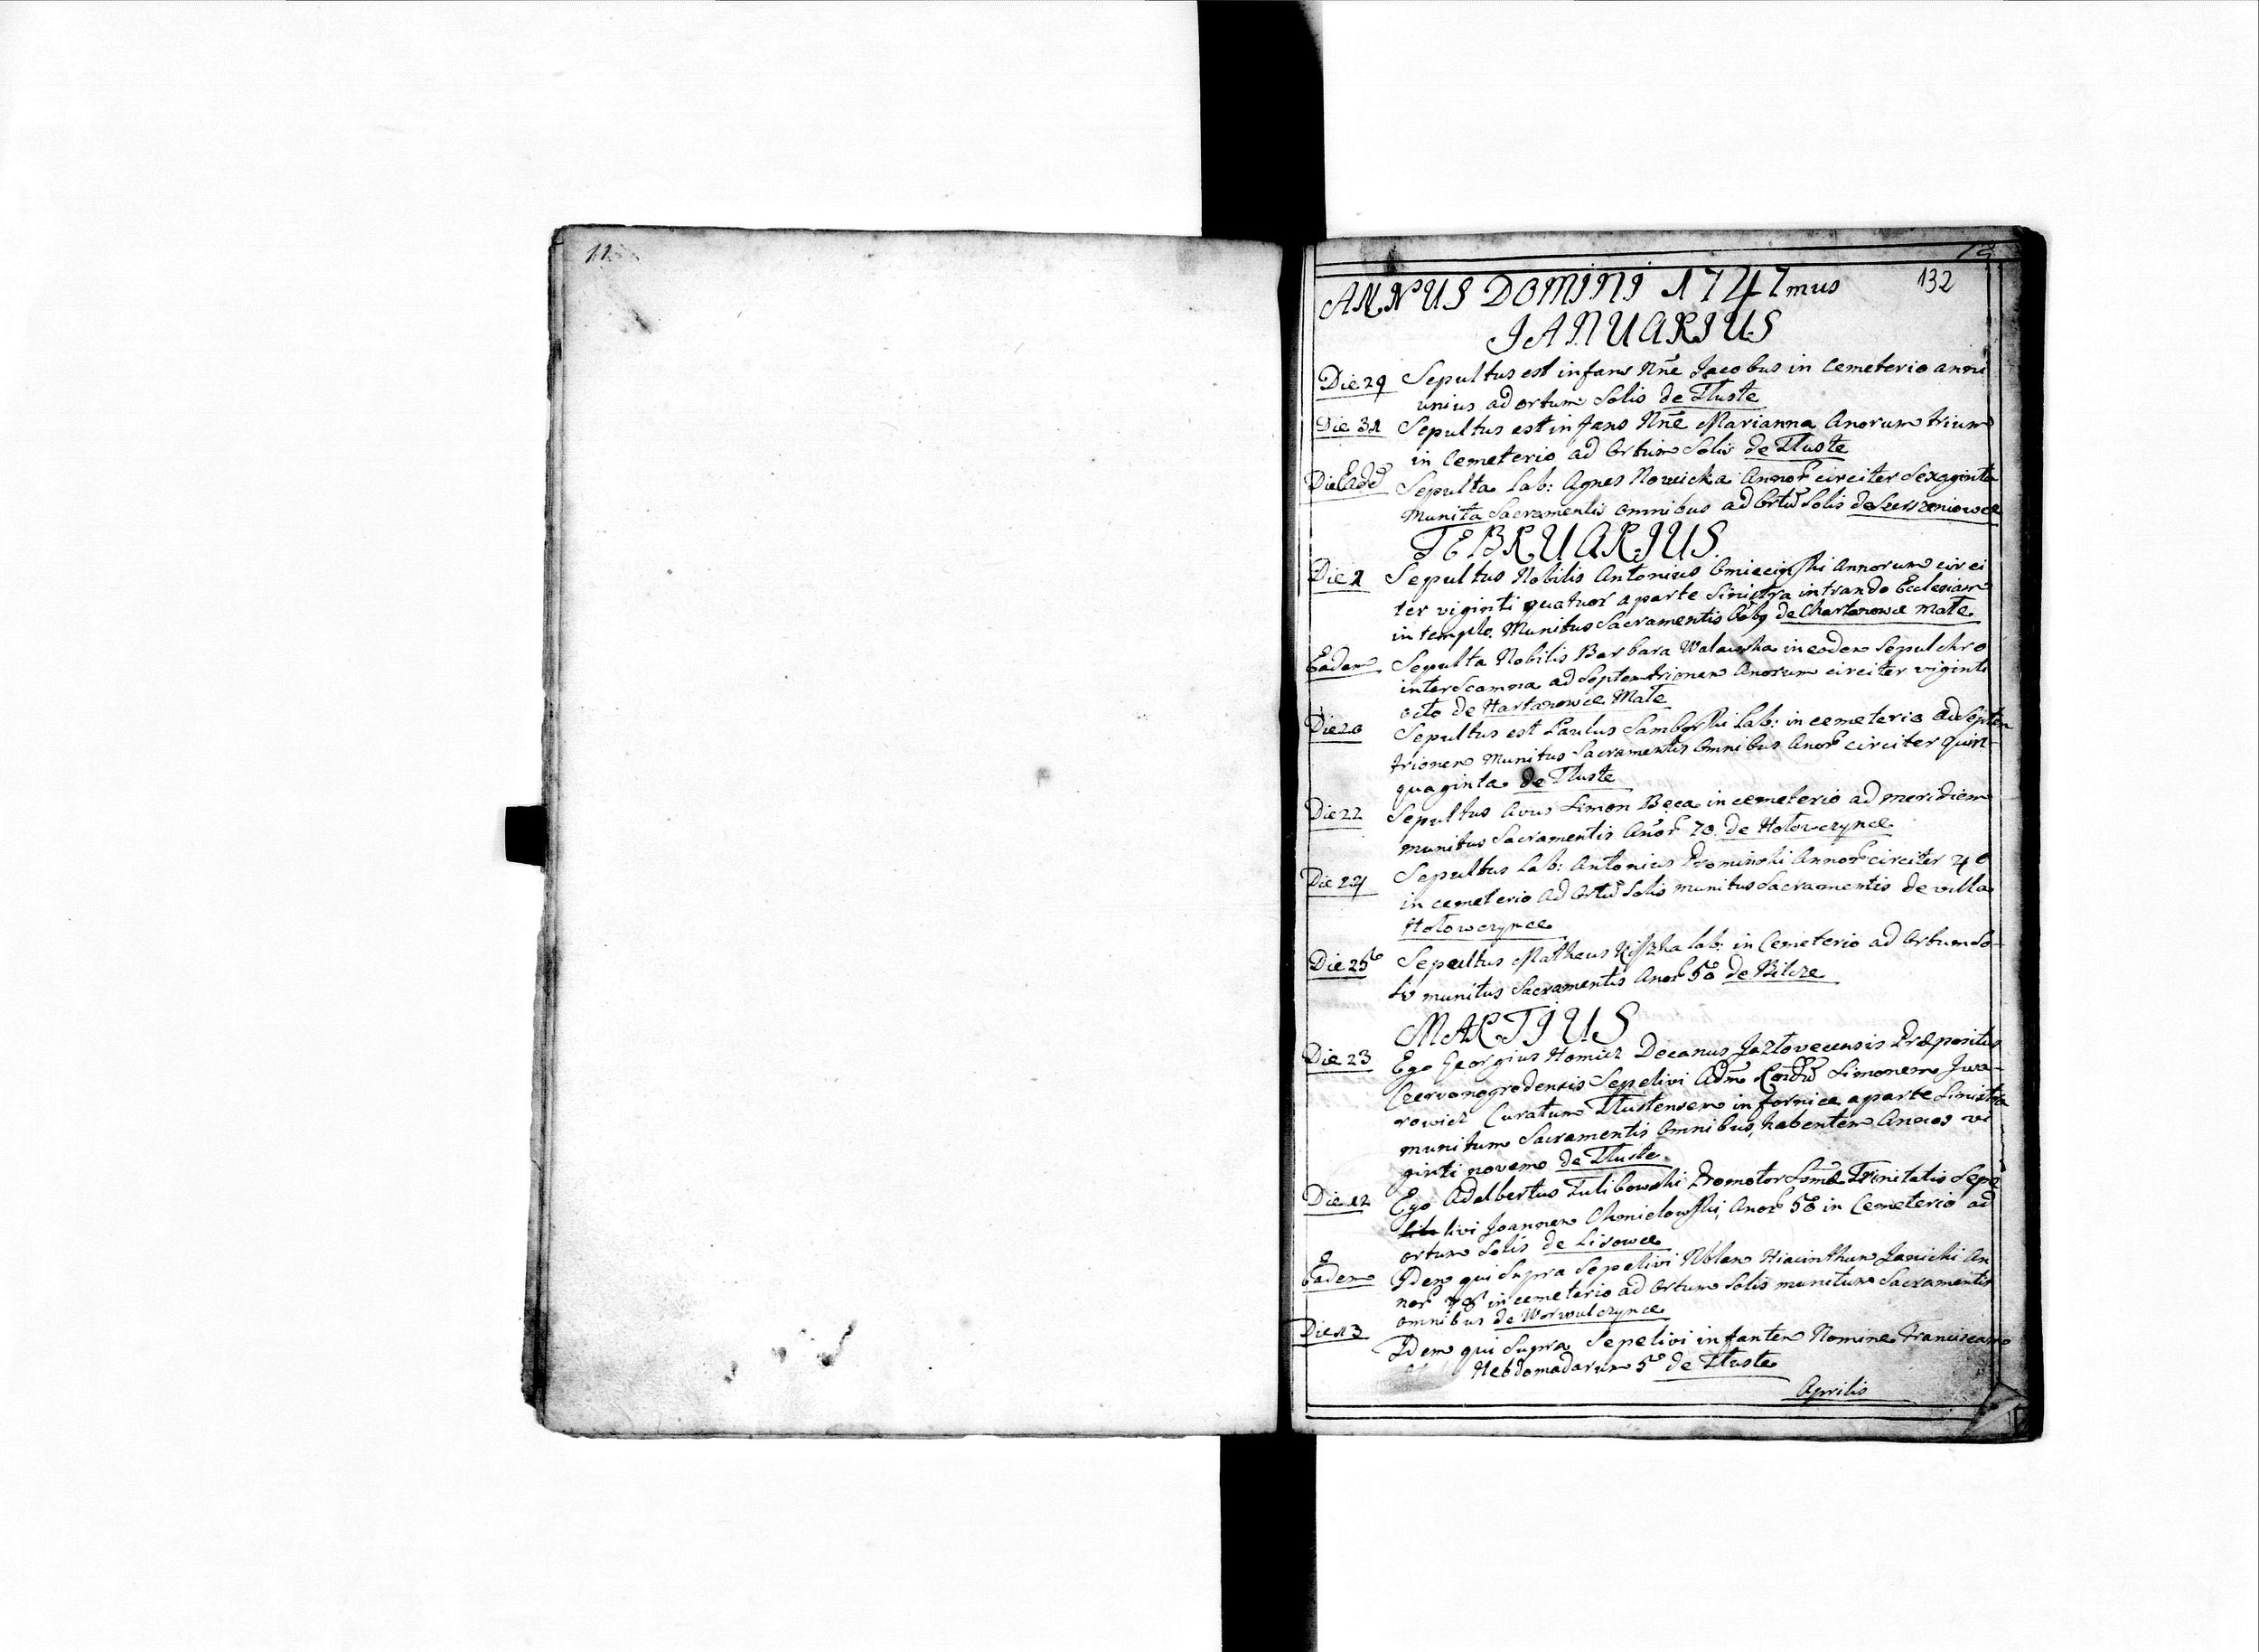 11
12
132
ANNUS DOMINI 1747mus
JANUARIUS
Die 29 Sepultus est infans Nne Jacobus in Cemeterio anni
unius ad ortum Solis de Tluste
Die 31 Sepultus est infans Nne Marianna Anorum trium
in Cemeterio ad Ortum Solis de Tluste
Die Ead Sepulta Lab: Agnes Nowicka Annor circiter Sexaginta
Munita Sacramentis Omnibus ad Ortu Solis de
FEBRUARIUS
Die 1 Sepultus Nobilis Antonius Annorum circi
ter viginti quatuor a parte Sinistra intrando Ecclesiam
in templo. Munitus Sacramentis de Chartanowce mate
Eadem Sepulta Nobilis Barbara Walewska in eodem Sepulchro
inter Scamna ad Septemtrionem Anorum circiter viginti
octo de Hartanowce Mate
Die 20 Sepultus est Paulus Samborski Lab: in cemeterio ad Septem
trionem Munitus Sacramentis Omnibus Anor circiter quin-
quaginta de Tluste
Die 22 Sepultus Avus Simon Beca in cemeterio ad meridiem
munitus Sacramentis Anor 70. de Holowczynce
Die 24 Sepultus Lab: Antonius Prominski Annor circiter 40
in cemeterio ad Ortu Solis munitus Sacramentis de villa
Holowczynce
Die 25 Sepultus Matheus Lab: in Cemeterio ad Ortum So-
lis munitus Sacramentis Anor 50 de Bilcze
MARTIUS
Die 23 Ego Georgius Homicz Decanus Jazlovecensis Præpositus
Czervonogrodensis Sepelivi Adm Rndu Simonem Jwa-
rowicz Curatum Tlustensem in fornice a parte Sinistra
munitum Sacramentis Omnibus, habentem Annos vi
ginti novem de Tluste.
Die 12 Ego Adalbertus Tulibowski Promotor Ssmæ Trinitatis Sepe
livi Joannem Chmielowski, Anor 50 in Cemeterio ad
ortum Solis de Lisowce
Eadem Idem qui Supra Sepelivi Nblem Hiacinthum Janicki An
nor 78 in cemeterio ad Ortum Solis munitum Sacramentis
omnibus de Worwulczynce
Die 13 Idem qui Supra Sepelivi infantem Nomine Franciscam
Hebdomadarum 5 de Tluste
Aprilis